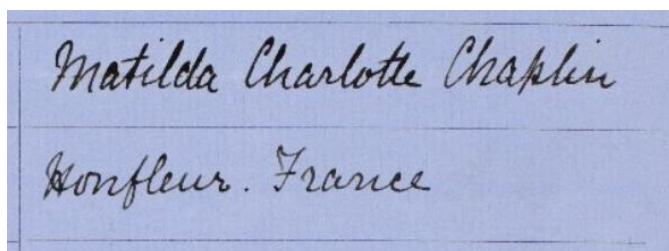 Matilda Charlotte Chaplin
Honfleur. France